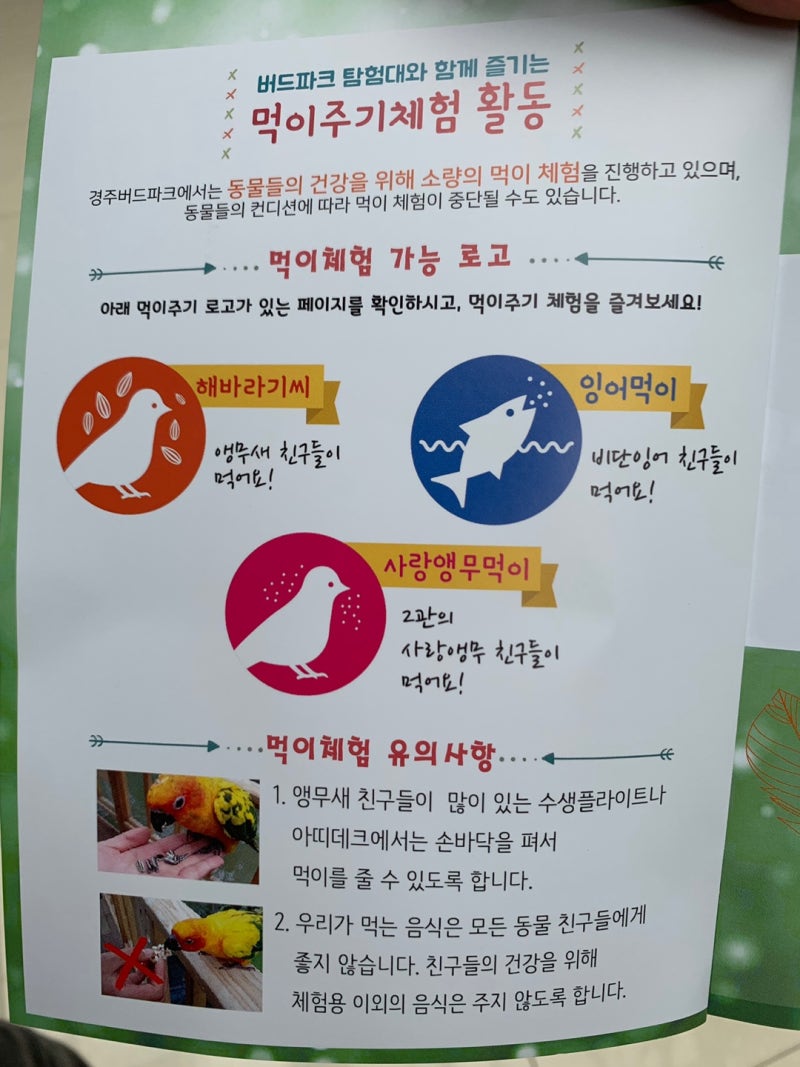 버드파크 탐험대와 함께 즐기는
먹이주기체험 활동
경주버드파크에서는 동물들의 건강을 위해 소량의 먹이 체험을 진행하고 있으며,
동물들의 컨디션에 따라 먹이 체험이 중단될 수도 있습니다.
먹이체험 가능 로고
아래 먹이주기 로고가 있는 페이지를 확인하시고, 먹이주기 체험을 즐겨보세요!
해바라기씨
앵무새 친구들이
먹어요!
잉어먹이
비단잉어 친구들이
먹어요!
사랑앵무먹이
2관의
사랑앵무 친구들이
먹어요!
먹이체험 유의사항
1. 앵무새 친구들이 많이 있는 수생플라이트나
아띠데크에서는 손바닥을 펴서
먹이를 줄 수 있도록 합니다.
2. 우리가 먹는 음식은 모든 동물 친구들에게
좋지 않습니다. 친구들의 건강을 위해
체험용 이외의 음식은 주지 않도록 합니다.